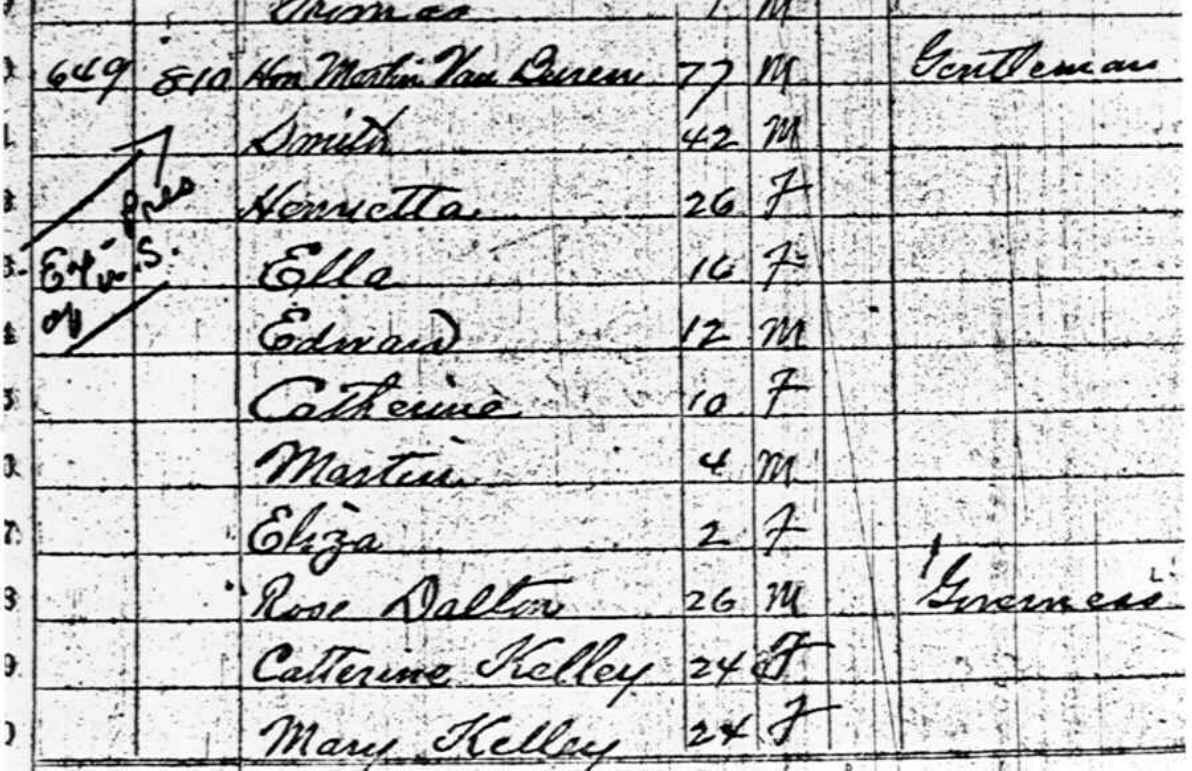 Thomas 1 M
649 810 Hon Martin Van Buren 77 M Gentleman
Smith 42 M
Henrietta 26 F
Ella 16 F
Edward 12 M
Catherine 10 F
Martin 4 M
Eliza 2 F
Rose Dalton 26 M Governess
Catterine Kelley 24 F
Mary Kelley 24 F
Ex- Pres
of U.S.